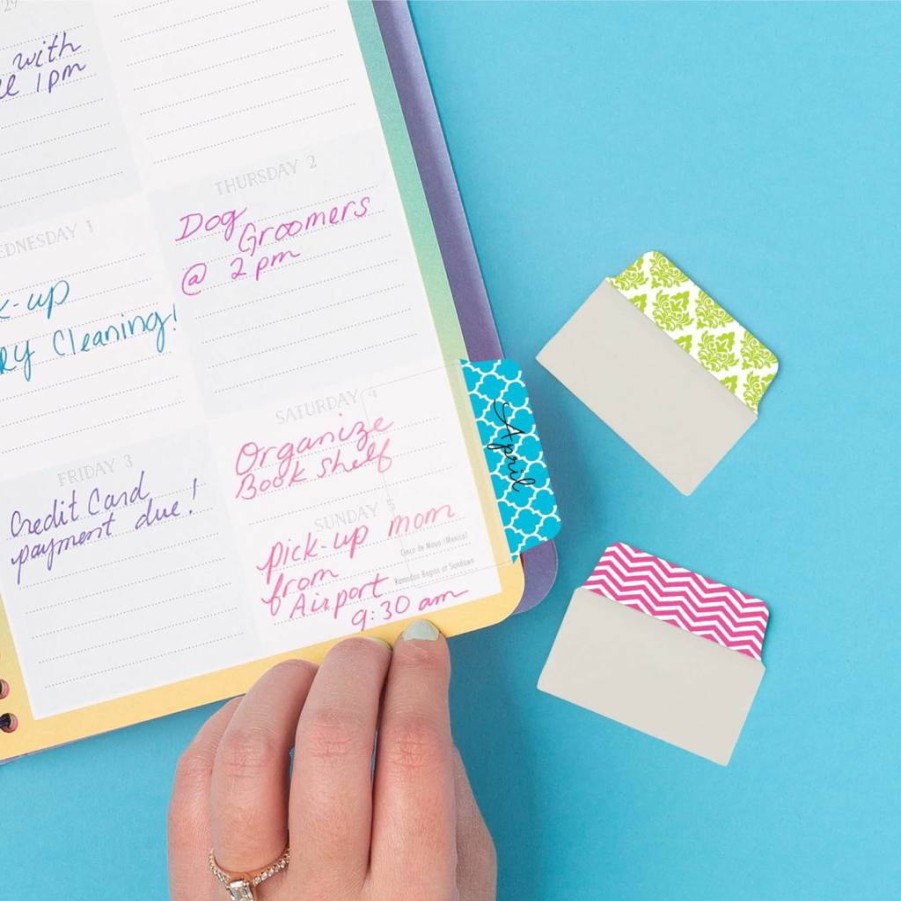 29
with
1pm
EDNESDAY 1
k-up
ry Cleaning!
FRIDAY 3
Credit Card
payment due!
THURSDAY 2
Dog
Groomers
@ 2pm
SATURDAY 4
Organize
Book Shelf
SUNDAY 5
pick-up mom
Cinco de Mayo (Mexico)
from
Ramadan Begins at Sundown
Airport
9:30 am
April